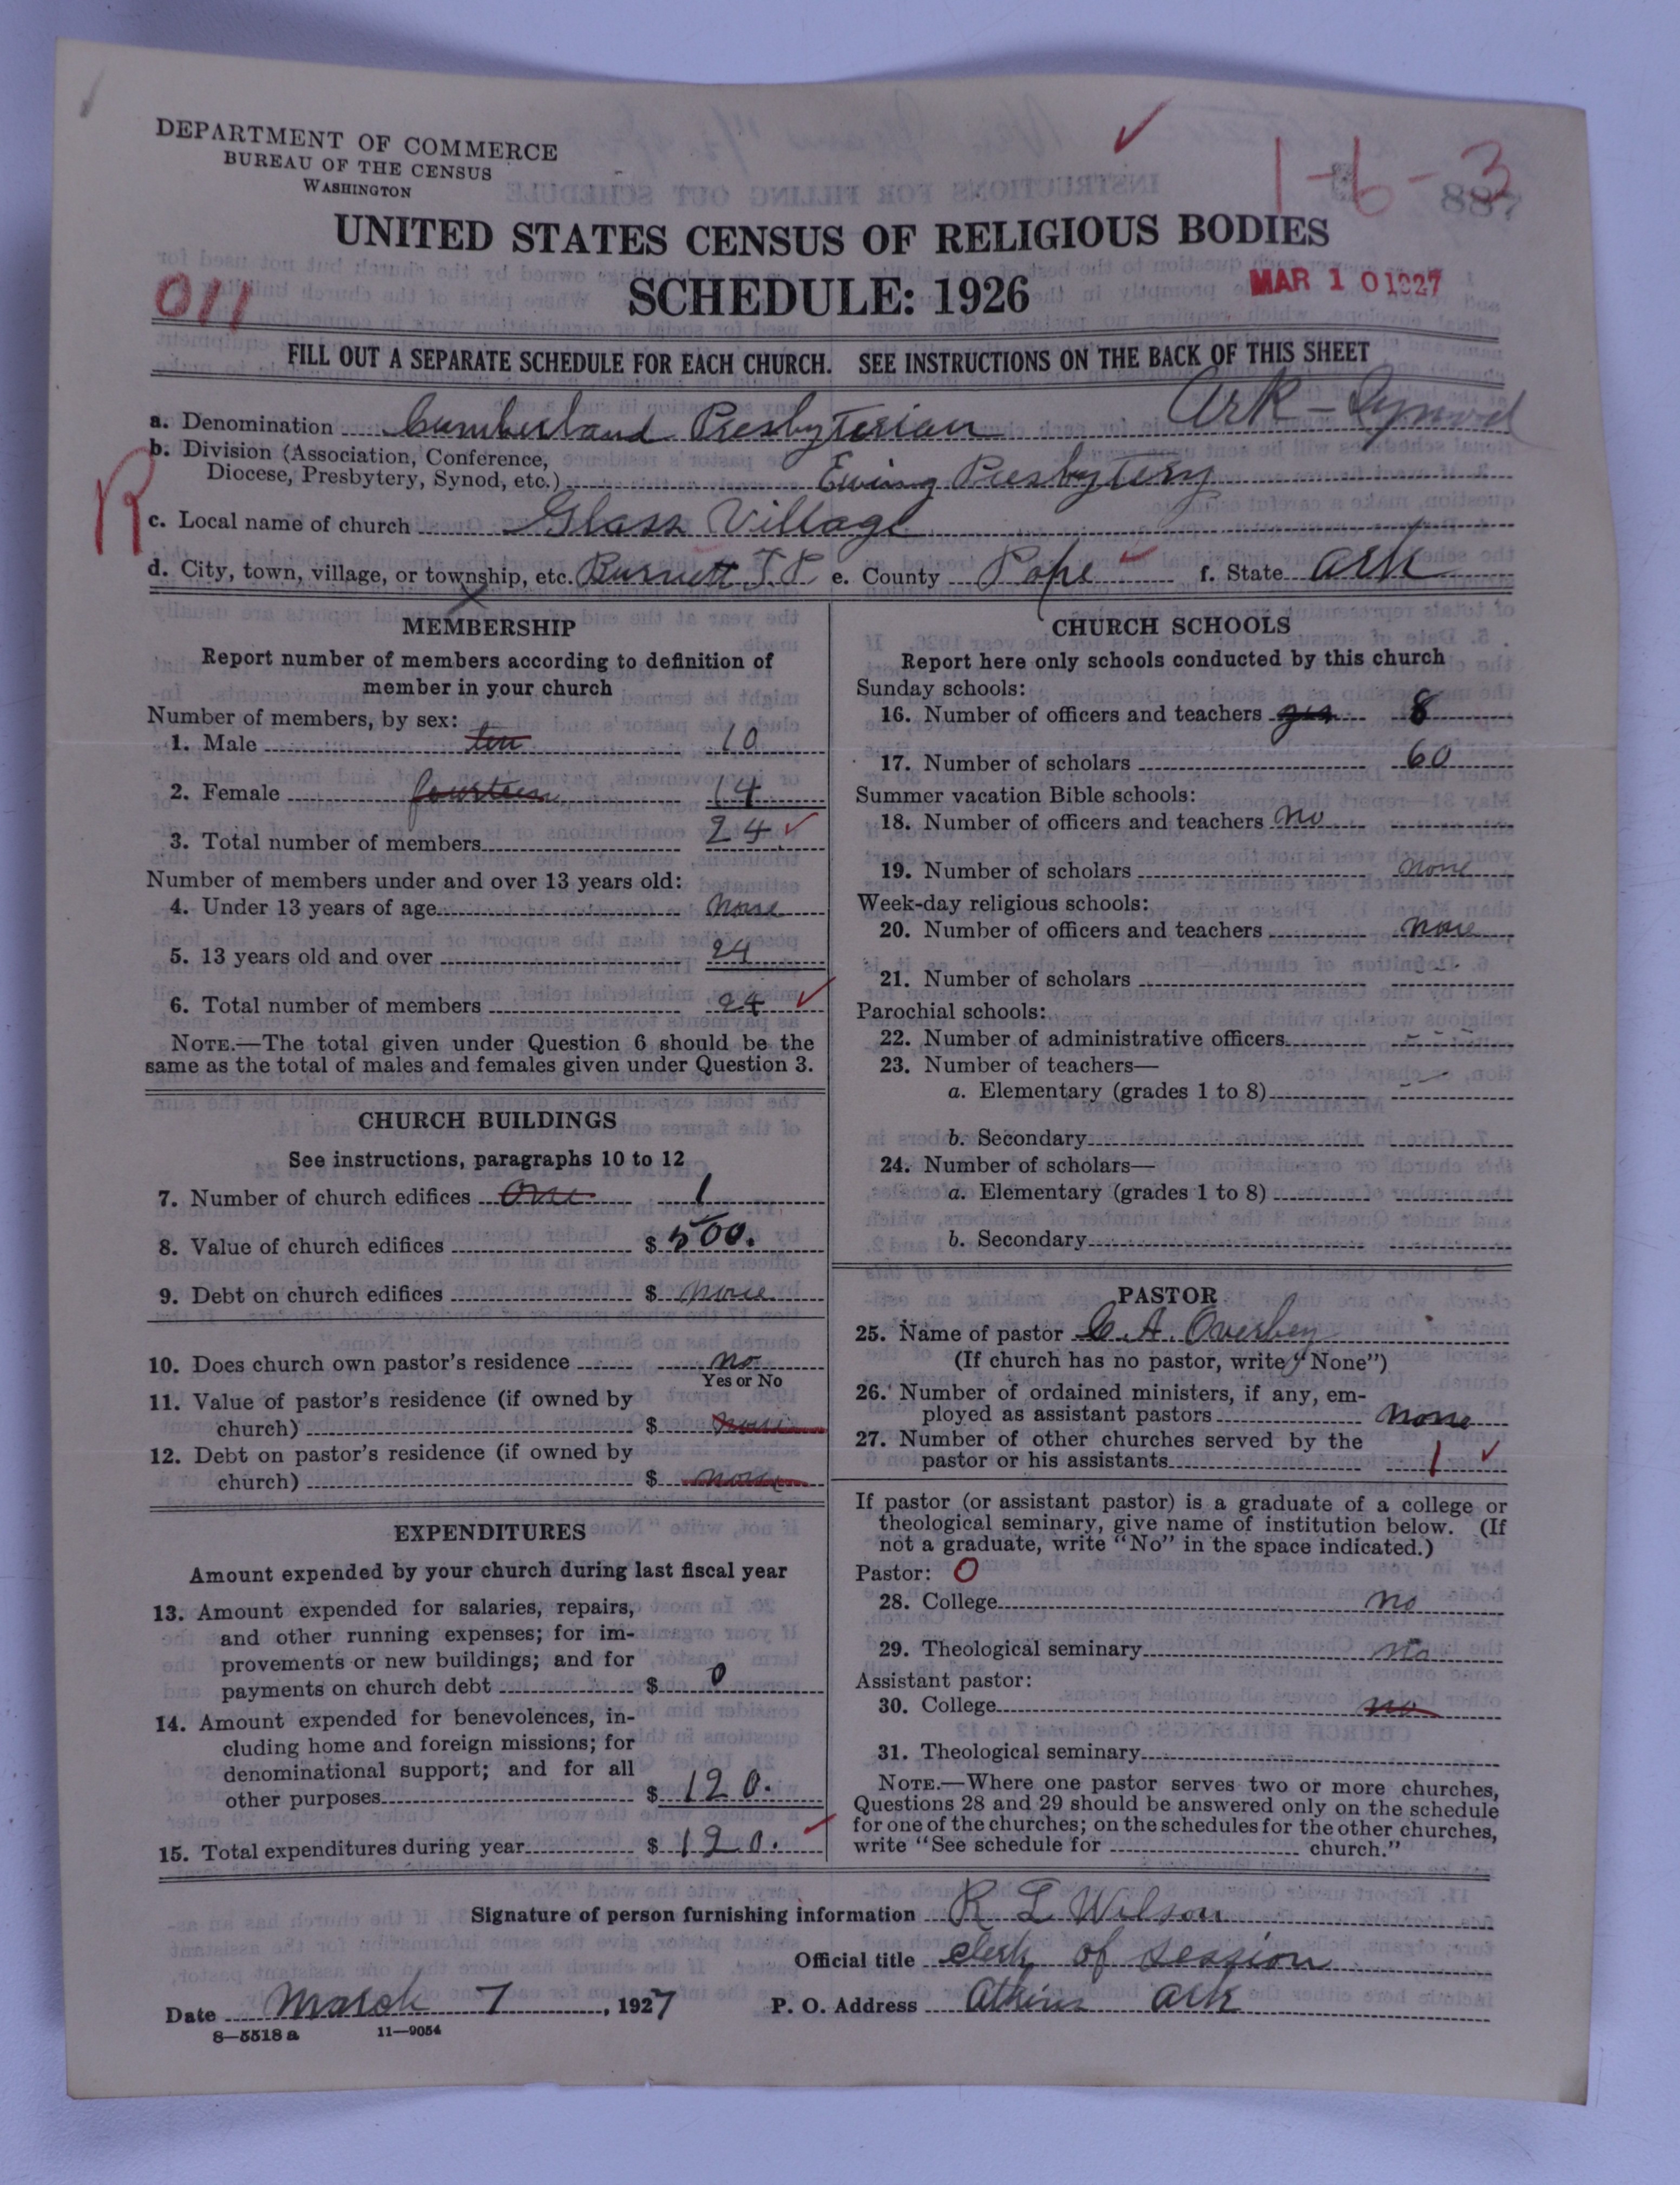 DEPARTMENT OF COMMERCE
BUREAU OF THE CENSUS
WASHINGTON
1-6-3
887
UNITED STATES CENSUS OF RELIGIOUS BODIES
SCHEDULE: 1926
011
MAR 10 1927
FILL OUT A SEPARATE SCHEDULE FOR EACH CHURCH. SEE INSTRUCTIONS ON THE BACK OF THIS SHEET
a. Denomination Cumberland Presbyterian Ark-Synod
b. Division (Association, Conference,
Diocese, Presbytery, Synod, etc.) Ewing Presbytery
R
c. Local name of church Glass Village
d. City, town, village, or township, etc. Burnett T.P. e. County Pope f. State Ark
MEMBERSHIP
Report number of members according to definition of
member in your church
Number of members, by sex:
1. Male ten 10
2. Female fourteen 14
3. Total number of members 24
Number of members under and over 13 years old:
4. Under 13 years of age none
5. 13 years old and over 24
6. Total number of members 24
NOTE.—The total given under Question 6 should be the
same as the total of males and females given under Question 3.
CHURCH BUILDINGS
See instructions, paragraphs 10 to 12
7. Number of church edifices One 1
8. Value of church edifices $ 500.
9. Debt on church edifices $ none
10. Does church own pastor's residence no
Yes or No
11. Value of pastor's residence (if owned by
church) $ none
12. Debt on pastor's residence (if owned by
church) $ none
EXPENDITURES
Amount expended by your church during last fiscal year
13. Amount expended for salaries, repairs,
and other running expenses; for im-
provements or new buildings; and for
payments on church debt $ 0
14. Amount expended for benevolences, in-
cluding home and foreign missions; for
denominational support; and for all
other purposes $ 120.
15. Total expenditures during year $ 120.
CHURCH SCHOOLS
Report here only schools conducted by this church
Sunday schools:
16. Number of officers and teachers yes 8
17. Number of scholars 60
Summer vacation Bible schools:
18. Number of officers and teachers no
19. Number of scholars none
Week-day religious schools:
20. Number of officers and teachers none
21. Number of scholars - -
Parochial schools:
22. Number of administrative officers - - -
23. Number of teachers—
a. Elementary (grades 1 to 8) - -
b. Secondary
24. Number of scholars—
a. Elementary (grades 1 to 8)
b. Secondary
PASTOR
25. Name of pastor C. A. Overbey
(If church has no pastor, write "None")
26. Number of ordained ministers, if any, em-
ployed as assistant pastors none
27. Number of other churches served by the
pastor or his assistants 1
If pastor (or assistant pastor) is a graduate of a college or
theological seminary, give name of institution below. (If
not a graduate, write "No" in the space indicated.)
Pastor: 0
28. College no
29. Theological seminary no
Assistant pastor:
30. College no
31. Theological seminary
NOTE.—Where one pastor serves two or more churches,
Questions 28 and 29 should be answered only on the schedule
for one of the churches; on the schedules for the other churches,
write "See schedule for church."
Signature of person furnishing information R L Wilson
Official title clerk of session
Date March 7, 1927 P. O. Address Atkins Ark
8—5518 a 11—9054